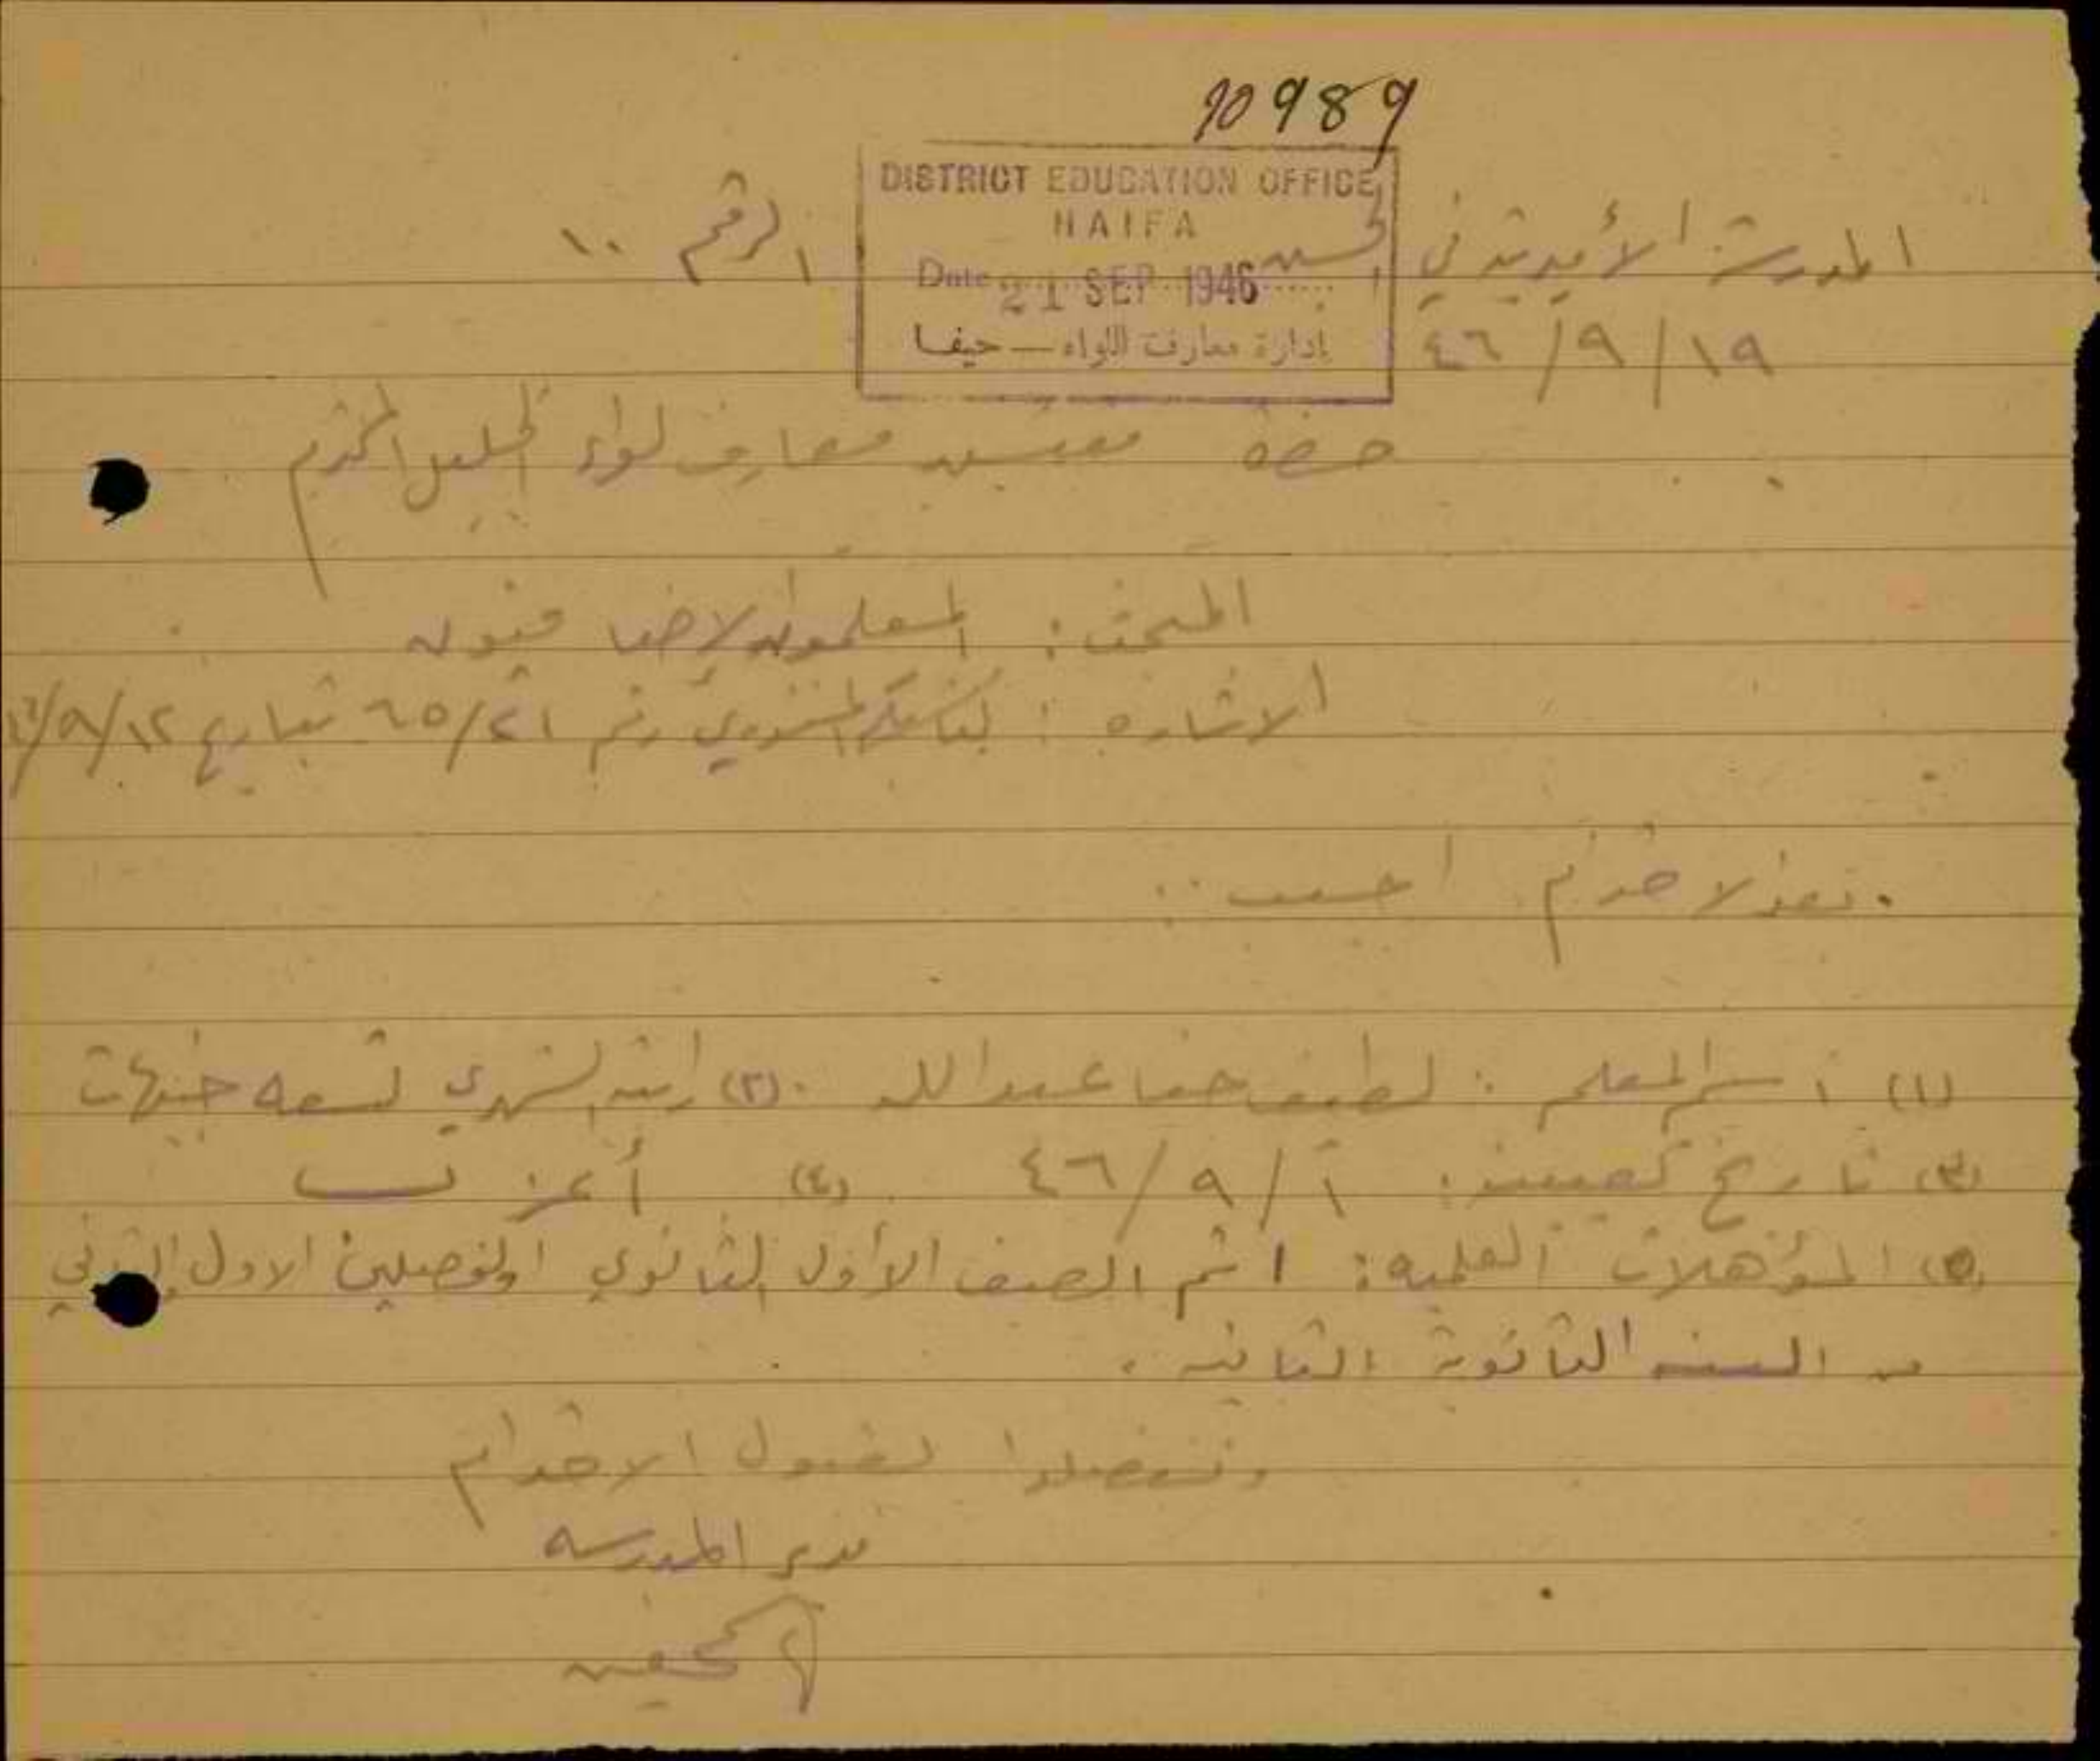 10989
DISTRICT EDUCATION OFFICE
HAIFA
Date 21 SEP 1946
إدارة معارف اللواء — حيفا
المدرسة الأميرية في الرقم ١٠
١٩/٩/٤٦
حضرة مفتش معارف لواء الجليل المحترم
المبحث: المعلمون الإضافيون
الإشارة: لمنشوري رقم ٦٥/٢١ بتاريخ ١٢/٩/
بعد الاحترام أجيب ..
(١) اسم المعلم: لطيف حنا عبدالله. (٢) راتبه الشهري تسعة جنيهات
(٣) تاريخ تعيينه: ١/٩/٤٦ (٤) أعزب
(٥) المؤهلات العلمية: اتم الصف الأول الثانوي والفصلين الاول والثاني
من السنه الثانوية الثانيه.
وتفضلوا بقبول الاحترام
مدير المدرسه